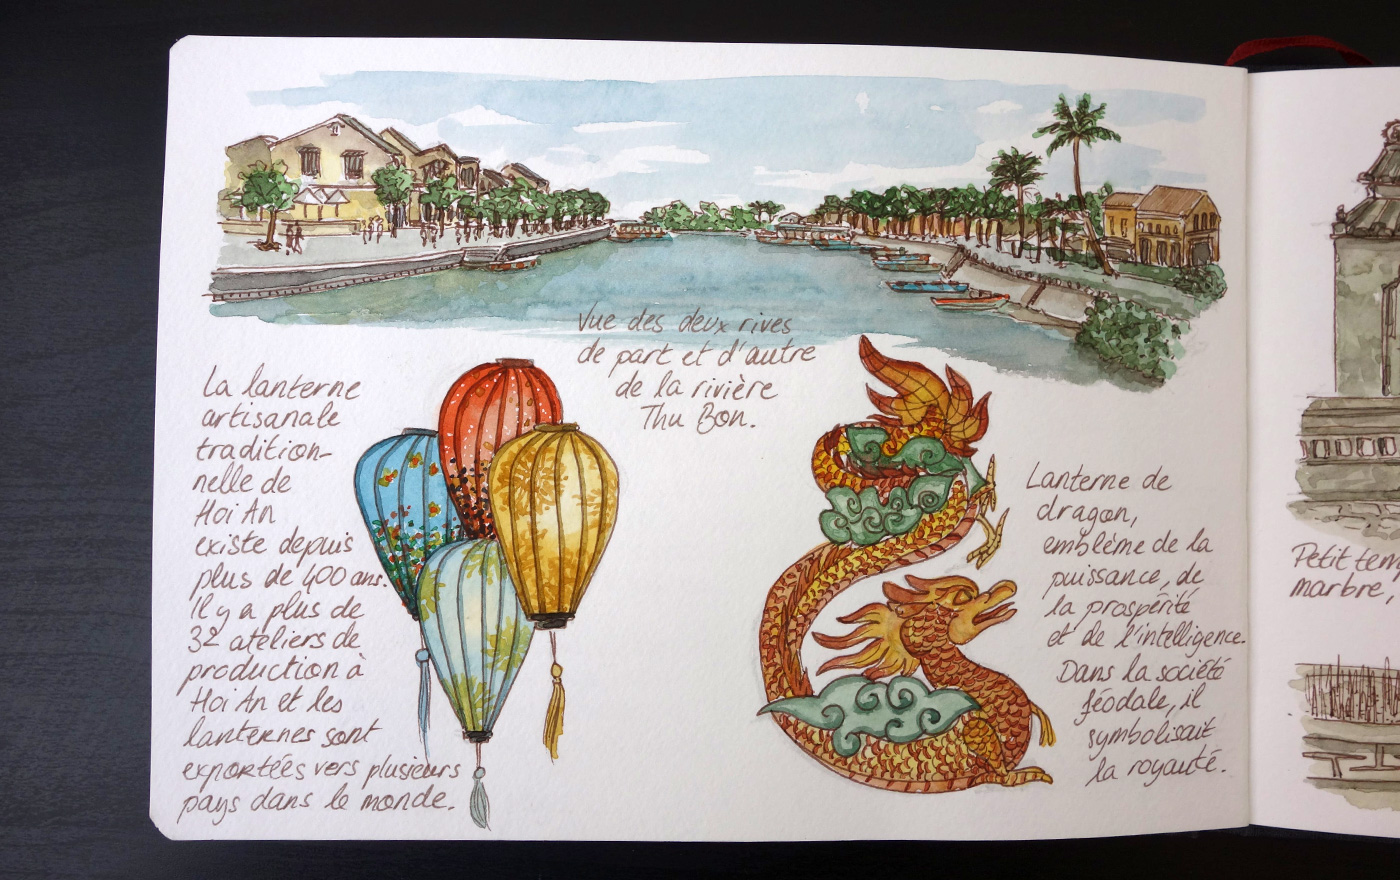 Vue des deux rives
de part et d'autre
de la rivière
Thu Bon.
La lanterne
artisanale
tradition-
nelle de
Hoi An
existe depuis
plus de 400 ans.
Il y a plus de
32 ateliers de
production à
Hoi An et les
lanternes sont
exportées vers plusieurs
pays dans le monde.
Lanterne de
dragon,
emblème de la
puissance, de
la prospérité
et de l'intelligence.
Dans la société
féodale, il
symbolisait
la royauté.
Petit tem
marbre,